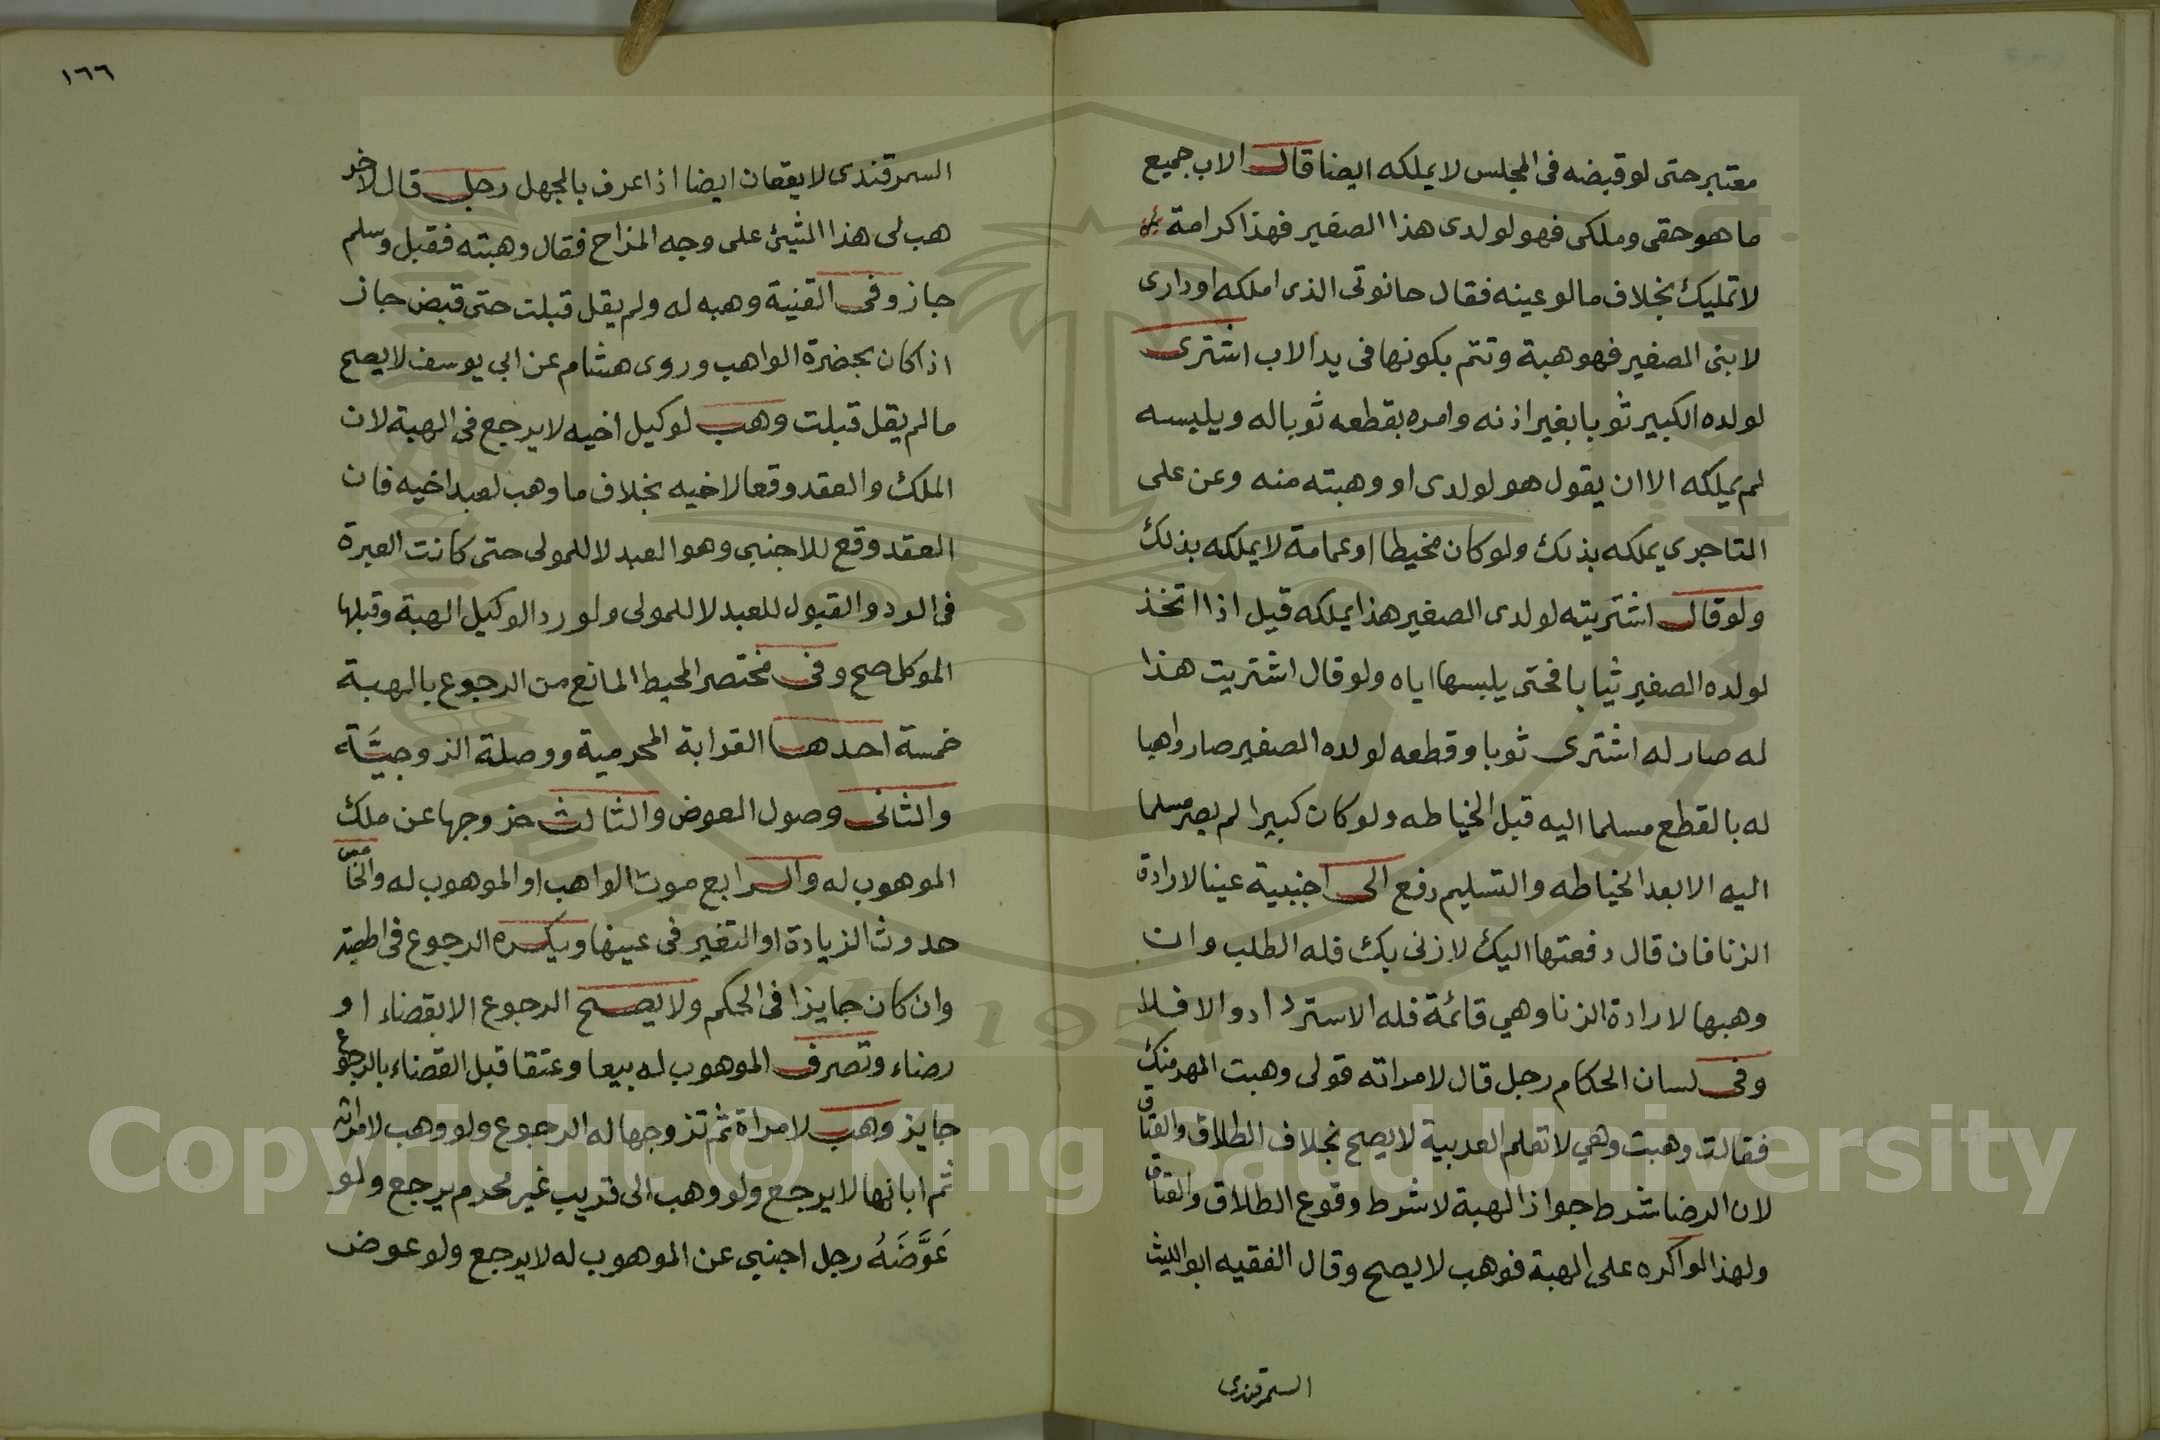 معتبر حتى لو قبضه فى المجلس لا يملكه ايضا قال الاب جميع
ما هو حقى وملكى فهو لولدى هذا الصغير فهذا كرامة
لا تمليك بخلاف ما لو عينه فقال حانوتى الذى املكه او دارى
لابنى الصغير فهو هبة وتتم بكونها فى يد الاب اشترى
لولده الكبير ثوبا بغير اذنه وامره بقطعه ثوبا له ويلبسه
لم يملكه الا ان يقول هو لولدى او وهبته منه وعن على
التاجرى يملكه بذلك ولو كان مخيطا او عمامة لا يملكه بذلك
ولو قال اشتريته لولدى الصغير هذا يملكه قيل اذا اتخذ
لولده الصغير ثيابا فحتى يلبسها اياه ولو قال اشتريت هذا
له صار له اشترى ثوبا وقطعه لولده الصغير صار واهبا
له بالقطع مسلما اليه قبل الخياطه ولو كان كبيرا لم يصر مسلما
اليه الا بعد الخياطه والتسليم دفع الى اجنبية عينا لارادة
الزنا فان قال دفعتها اليك لازنى بك فله الطلب وان
وهبها لارادة الزنا وهي قائمة فله الاسترداد والا فلا
وفى لسان الحكام رجل قال لامراته قولى وهبت المهر منك
فقالت وهبت وهي لا تعلم العربية لا يصح بخلاف الطلاق والعتاق
لان الرضا شرط جواز الهبة لا شرط وقوع الطلاق والعتاق
ولهذا لو اكره على الهبة فوهب لا يصح وقال الفقيه ابو الليث
السمرقندى
١٦٦
السمرقندى لا يقعان ايضا اذا عرف بالجهل رجل قال لاخر
هب لى هذا الشيئ على وجه المزاح فقال وهبته فقبل وسلم
جاز وفى القنية وهبه له ولم يقل قبلت حتى قبض جاز
اذا كان بحضرة الواهب وروى هشام عن ابي يوسف لا يصح
ما لم يقل قبلت وهب لوكيل اخيه لا يرجع فى الهبة لان
الملك والعقد وقعا لاخيه بخلاف ما وهب لعبد اخيه فان
العقد وقع للاجنبى وهو العبد لا للمولى حتى كانت العبرة
فى الرد والقبول للعبد لا للمولى ولو رد الوكيل الهبة وقبلها
الموكل صح وفى مختصر المحيط المانع من الرجوع بالهبة
خمسة احدها القرابة المحرمية ووصلة الزوجيَّة
والثانى وصول العوض والثالث خروجها عن ملك
الموهوب له والرابع موت الواهب او الموهوب له والخامس
حدوث الزيادة او التغير فى عينها ويكره الرجوع فى الهبة
وان كان جايزا فى الحكم ولا يصح الرجوع الا بقضاء او
رضاء وتصرف الموهوب له بيعا وعتقا قبل القضاء بالرجوع
جايز وهب لامراة ثم تزوجها له الرجوع ولو وهب لامراته
ثم ابانها لا يرجع ولو وهب الى قريب غير محرم يرجع ولو
عَوَّضَهُ رجل اجنبي عن الموهوب له لا يرجع ولو عوض
Copyright © King Saud University
1957